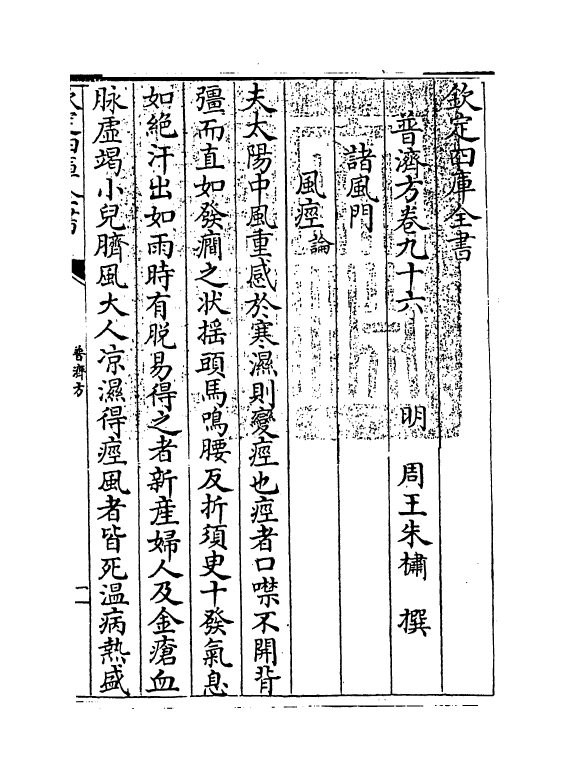 欽定四庫全書
普濟方卷九十六 明 周王朱橚 撰
諸風門
風痙論
夫太陽中風重感於寒濕則變痙也痙者口噤不開背
彊而直如發癇之狀揺頭馬鳴腰反折須吏十發氣息
如絶汗出如雨時有脱易得之者新産婦人及金瘡血
脉虚竭小兒臍風大人凉濕得痙風者皆死温病熱盛
欽定四庫全書
普濟方
一